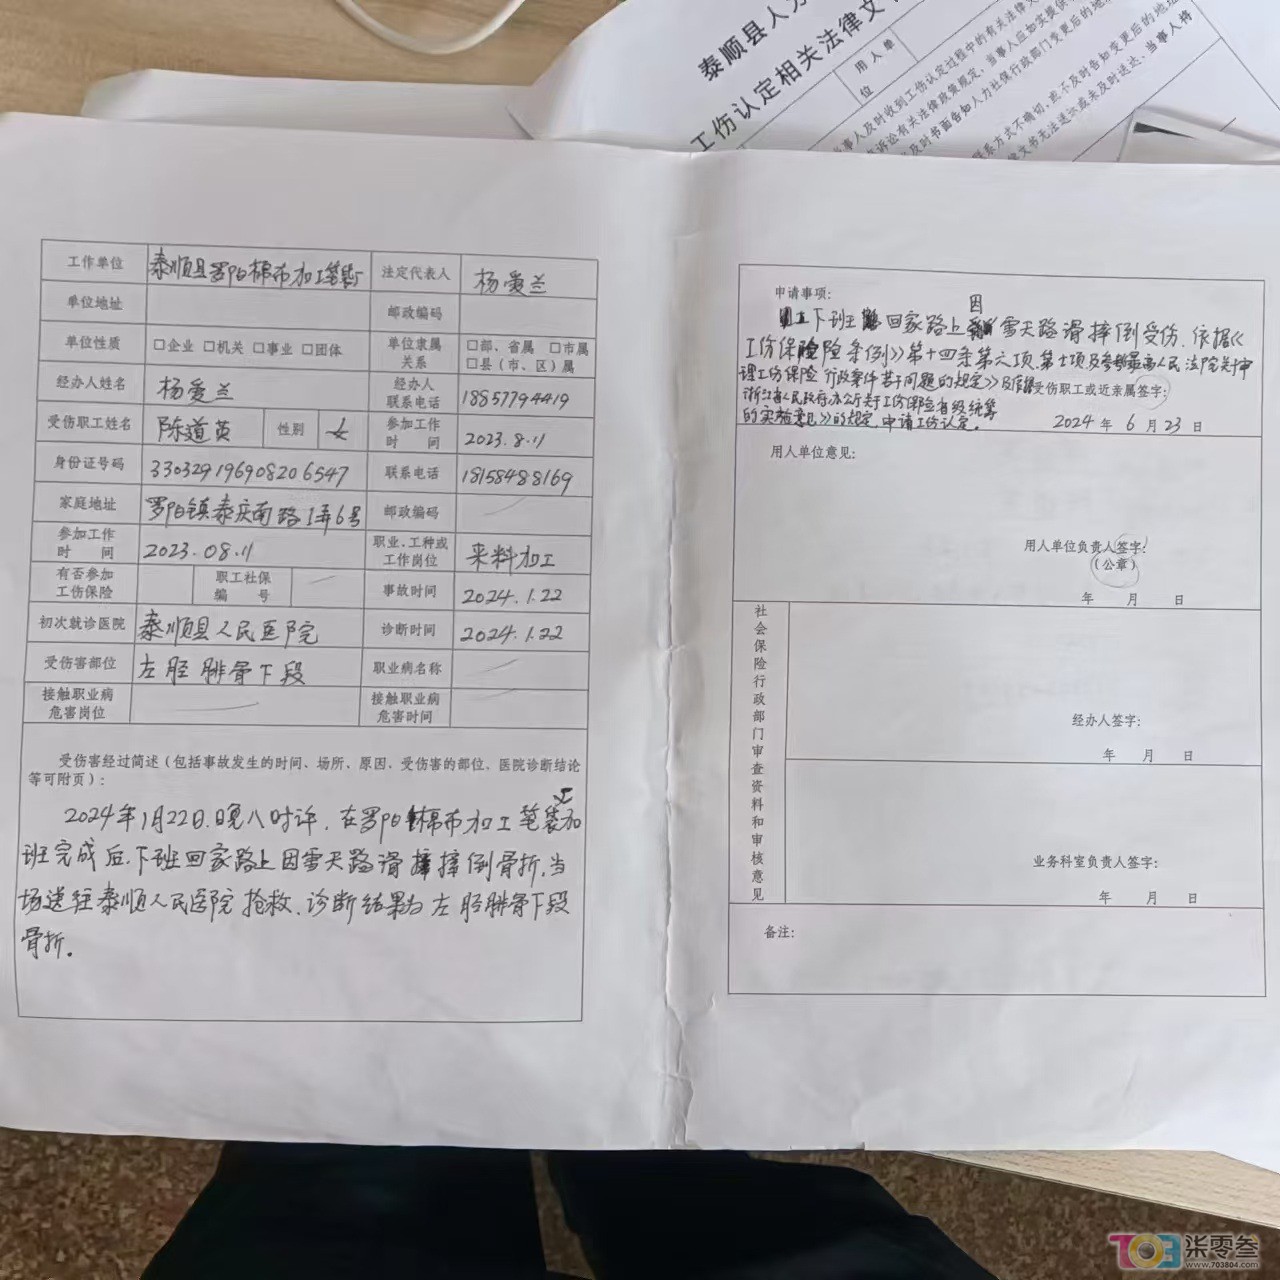 泰顺县人力
工伤认定相关法律文书
用人单
位
工作单位 泰顺县罗阳棉布加工笔袋厂 法定代表人 杨爱兰
单位地址 邮政编码
单位性质 □企业 □机关 □事业 □团体 单位隶属关系 □部、省属 □市属 □县(市、区)属
经办人姓名 杨爱兰 经办人联系电话 18857794419
受伤职工姓名 陈道英 性别 女 参加工作时间 2023.8.11
身份证号码 330329196908206547 联系电话 18158488169
家庭地址 罗阳镇泰庆南路1弄6号 邮政编码
参加工作时间 2023.08.11 职业、工种或工作岗位 来料加工
有否参加工伤保险 职工社保编号 事故时间 2024.1.22
初次就诊医院 泰顺县人民医院 诊断时间 2024.1.22
受伤害部位 左胫腓骨下段 职业病名称
接触职业病危害岗位 接触职业病危害时间
受伤害经过简述(包括事故发生的时间、场所、原因、受伤害的部位、医院诊断结论
等可附页):
2024年1月22日晚八时许,在罗阳棉布加工笔袋厂加
班完成后,下班回家路上因雪天路滑摔倒骨折,当
场送往泰顺人民医院抢救、诊断结果为左胫腓骨下段
骨折。
申请事项:
下班回家路上因雪天路滑摔倒受伤、依据《
工伤保险条例》第十四条第六项、第七项及最高人民法院关于审
理工伤保险行政案件若干问题的规定》及
受伤职工或近亲属签字:
浙江省人民政府办公厅关于工伤保险省级统筹
的实施意见》的规定,申请工伤认定。
2024年6月23日
用人单位意见:
用人单位负责人签字:
(公章)
年 月 日
社会保险行政部门审查资料和审核意见
经办人签字:
年 月 日
业务科室负责人签字:
年 月 日
备注:
703 柒零叁
www.703804.com